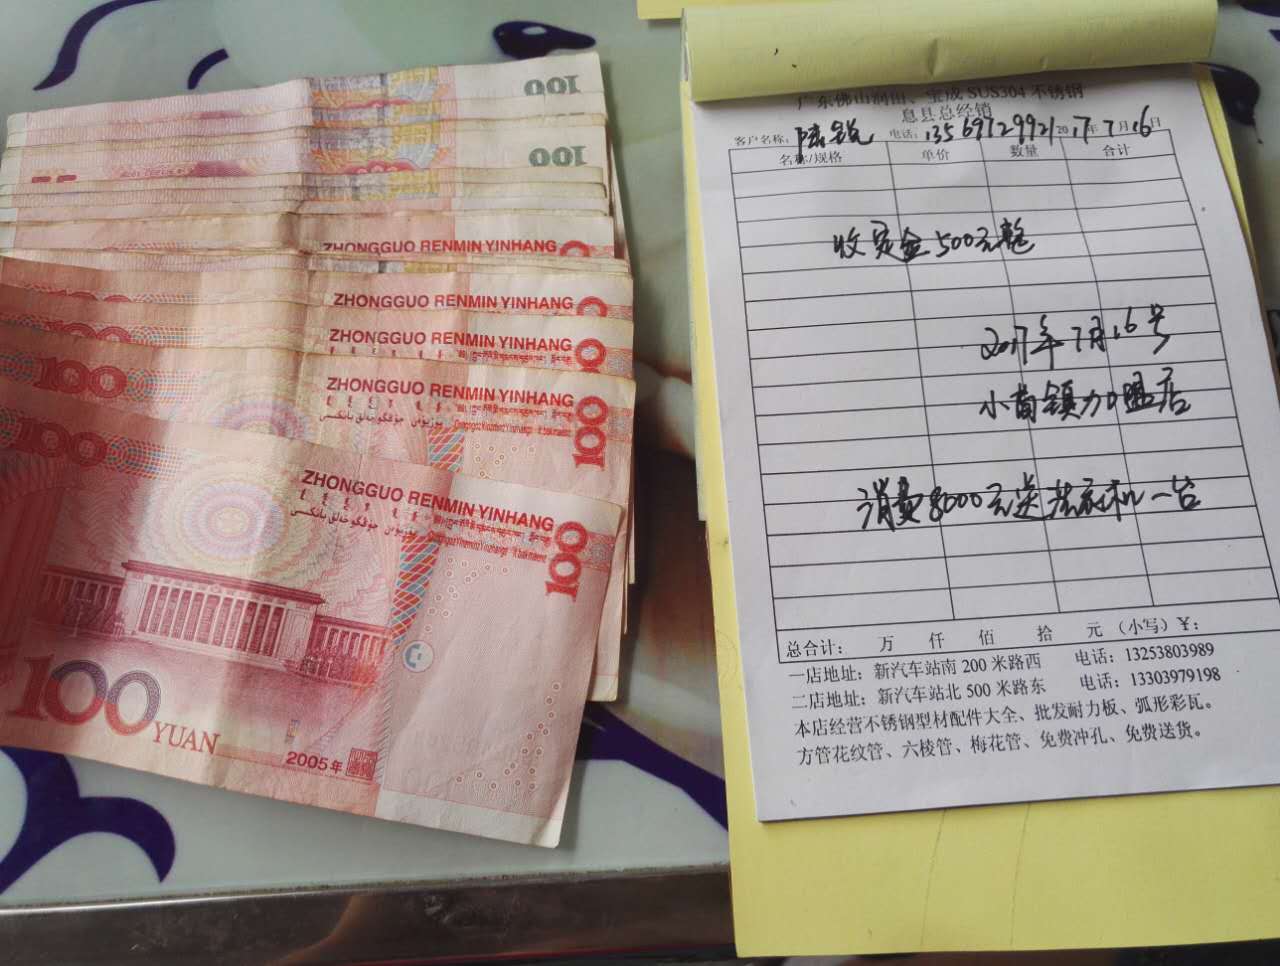 100
100
ZHONGGUO RENMIN YINHANG
ZHONGGUO RENMIN YINHANG
ZHONGGUO RENMIN YINHANG
100
ZHONGGUO RENMIN YINHANG
100
100
ZHONGGUO RENMIN YINHANG
100
100
100
YUAN
2005年
广东佛山润田、宝成SUS304不锈钢
息县总经销
客户名称: 陈锐 电话: 13569729921 2017年7月16日
名称/规格 单价 数量 合计
收定金500元整
2017年7月16号
小茴镇加盟店
消费8000元送 一台
总合计: 万 仟 佰 拾 元 (小写)¥:
一店地址: 新汽车站南200米路西 电话: 13253803989
二店地址: 新汽车站北500米路东 电话: 13303979198
本店经营不锈钢型材配件大全、批发耐力板、弧形彩瓦。
方管花纹管、六棱管、梅花管、免费冲孔、免费送货。